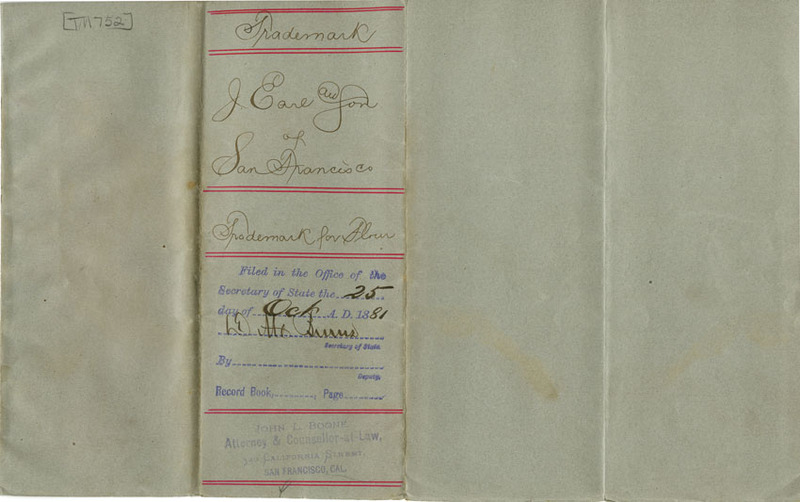 TM752
Trademark
J. Earl and Son
of
San Francisco
Trademark for Flour
Filed in the Office of the
Secretary of State the 25
day of Oct A. D. 1881
D M Burns
Secretary of State.
By
Deputy,
Record Book, Page
JOHN L. BOONE
Attorney & Counsellor-at-Law,
CALIFORNIA STREET,
SAN FRANCISCO, CAL.